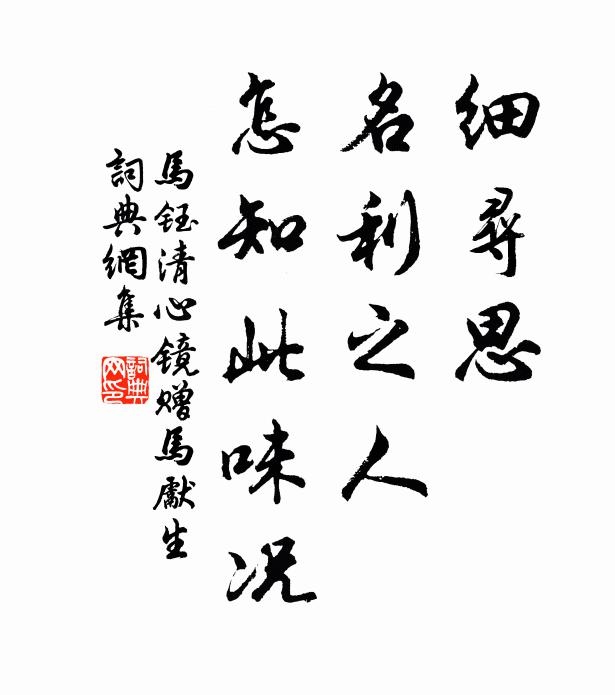 细尋思
名利之人
怎知此味况
馬鈺清心镜赠馬獻生
詞典網集
詞典网印